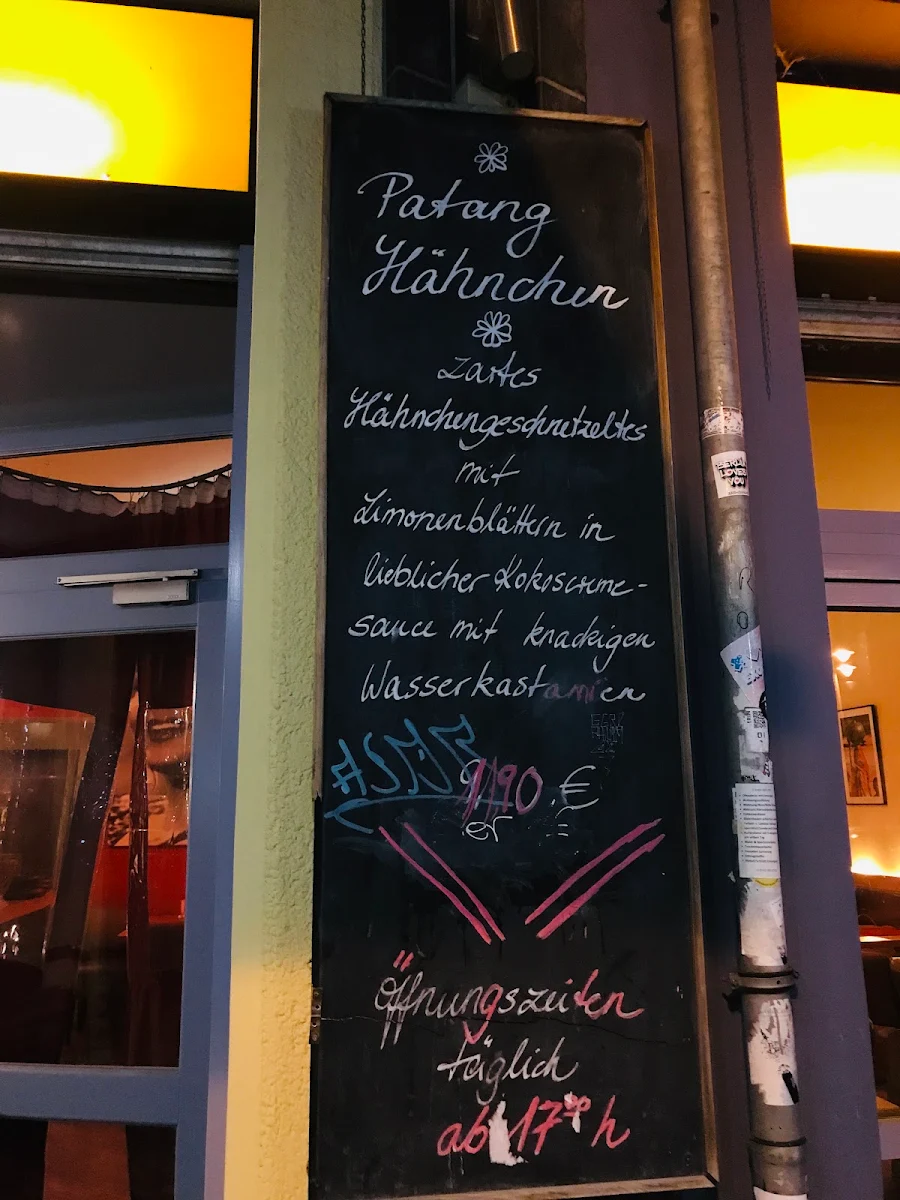 Patang
Hähnchen
zartes
Hähnchengeschnetzeltes
mit
Limonenblättern in
lieblicher Kokoscreme-
sauce mit knackigen
Wasserkastanien
9,90 €
Öffnungszeiten
täglich
ab 17³⁰ h
BERLIN
LOVES
YOU